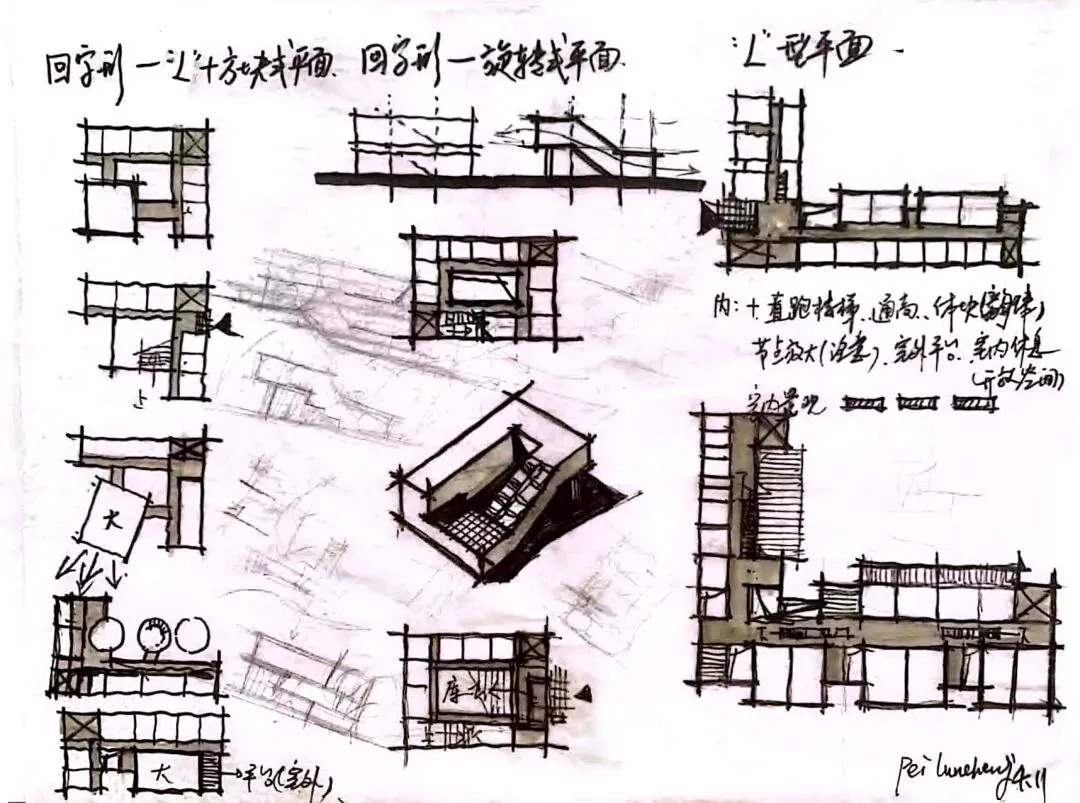 回字形 — "L"+方块式平面.
回字形 — 旋转式平面.
"L"型平面.
上
大
大
平台(室外)
上
内:+直跑楼梯、通高、体块
节点放大(冷巷)、室外平台、室内休息
(开放空间)
室内景观
4.11